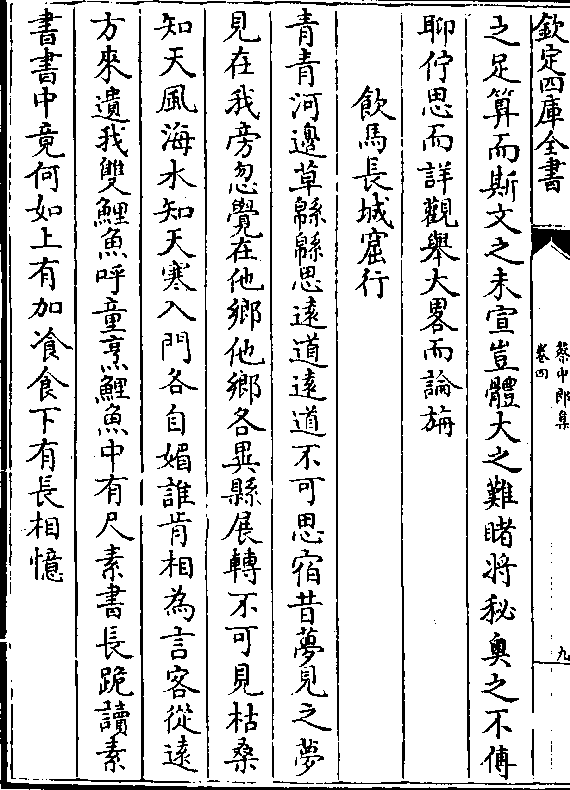 欽定四庫全書
蔡中郎集
卷四
九
之足算而斯文之未宣豈體大之難睹將秘奥之不傅
聊佇思而詳觀舉大畧而論旃
飲馬長城窟行
青青河邊草緜緜思遠道遠道不可思宿昔夢見之夢
見在我旁忽覺在他鄉他鄉各異縣展轉不可見枯桑
知天風海水知天寒入門各自媚誰肯相為言客從遠
方來遺我雙鯉魚呼童烹鯉魚中有尺素書長跪讀素
書書中竟何如上有加飡食下有長相憶